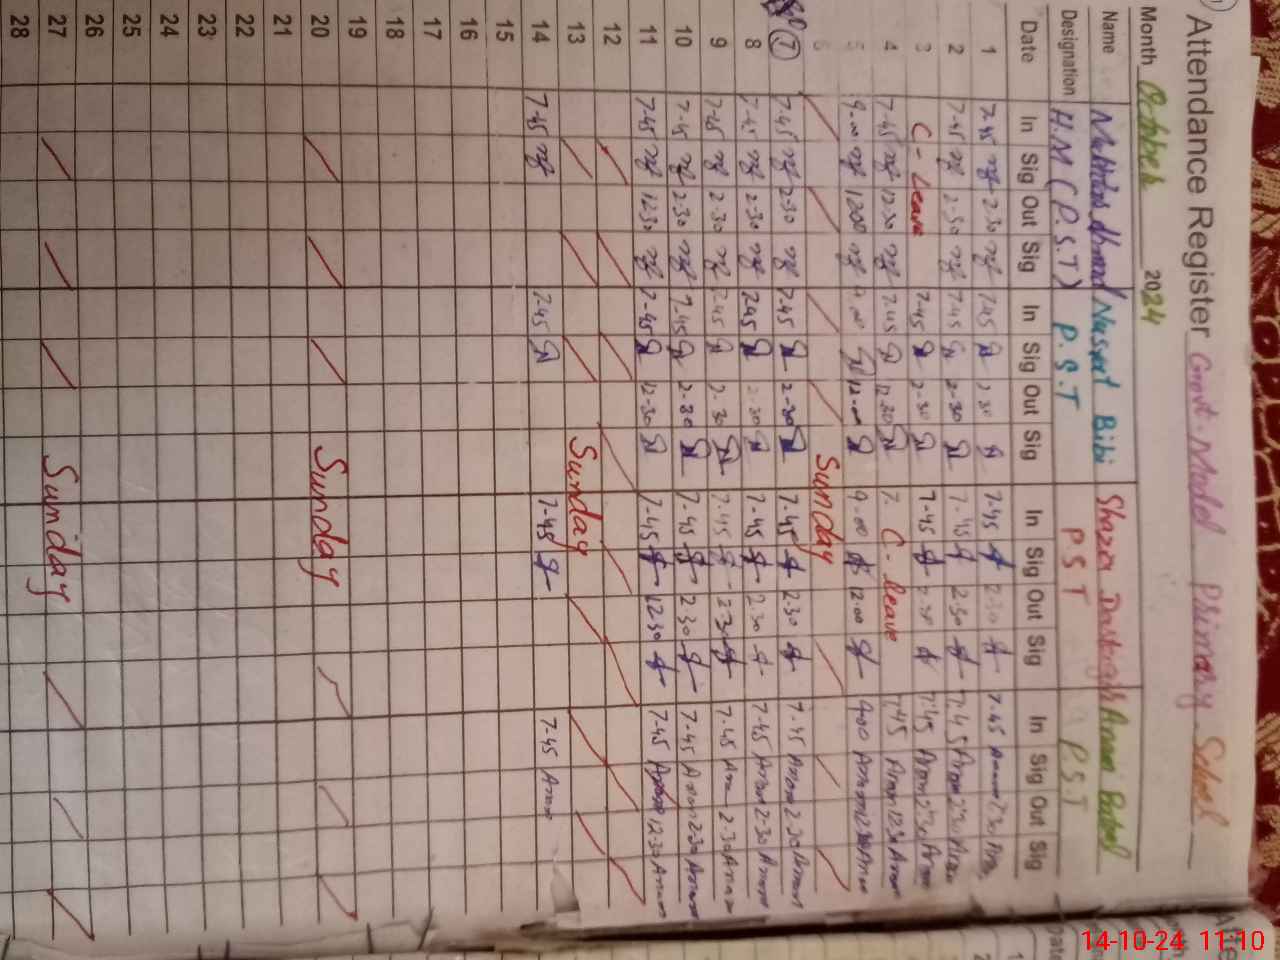 Attendance Register Govt. Model Primary School
Month October 2024
Name Nusrat Bibi Shazia Anam
Designation H.M (P.S.T) P.S.T P.S.T P.S.T
Date In Sig Out Sig In Sig Out Sig In Sig Out Sig In Sig Out Sig
1 7.45 2.30 7.45 2.30 7.45 2.30 7.45 Anam 2.30 Anam
2 7.45 2.30 7.45 2.30 7.45 2.30 7.45 Anam 2.30 Anam
3 C-Leave 7.45 2.30 7.45 2.30 7.45 Anam 2.30 Anam
4 7.45 12.30 7.45 12.30 7. C-leave 7.45 Anam 12.30 Anam
5 9.00 12.00 9.00 12.00 9.00 12.00 9.00 Anam 12.00 Anam
6 Sunday
7 7.45 2.30 7.45 2.30 7.45 2.30 7.45 Anam 2.30 Anam
8 7.45 2.30 7.45 2.30 7.45 2.30 7.45 Anam 2.30 Anam
9 7.45 2.30 7.45 2.30 7.45 2.30 7.45 Anam 2.30 Anam
10 7.45 2.30 7.45 2.30 7.45 2.30 7.45 Anam 2.30 Anam
11 7.45 12.30 7.45 12.30 7.45 12.30 7.45 Anam 12.30 Anam
12
13 Sunday
14 7.45 7.45 7.45 7.45 Anam
15
16
17
18
19
20 Sunday
21
22
23
24
25
26
27 Sunday
28
14-10-24 11:10